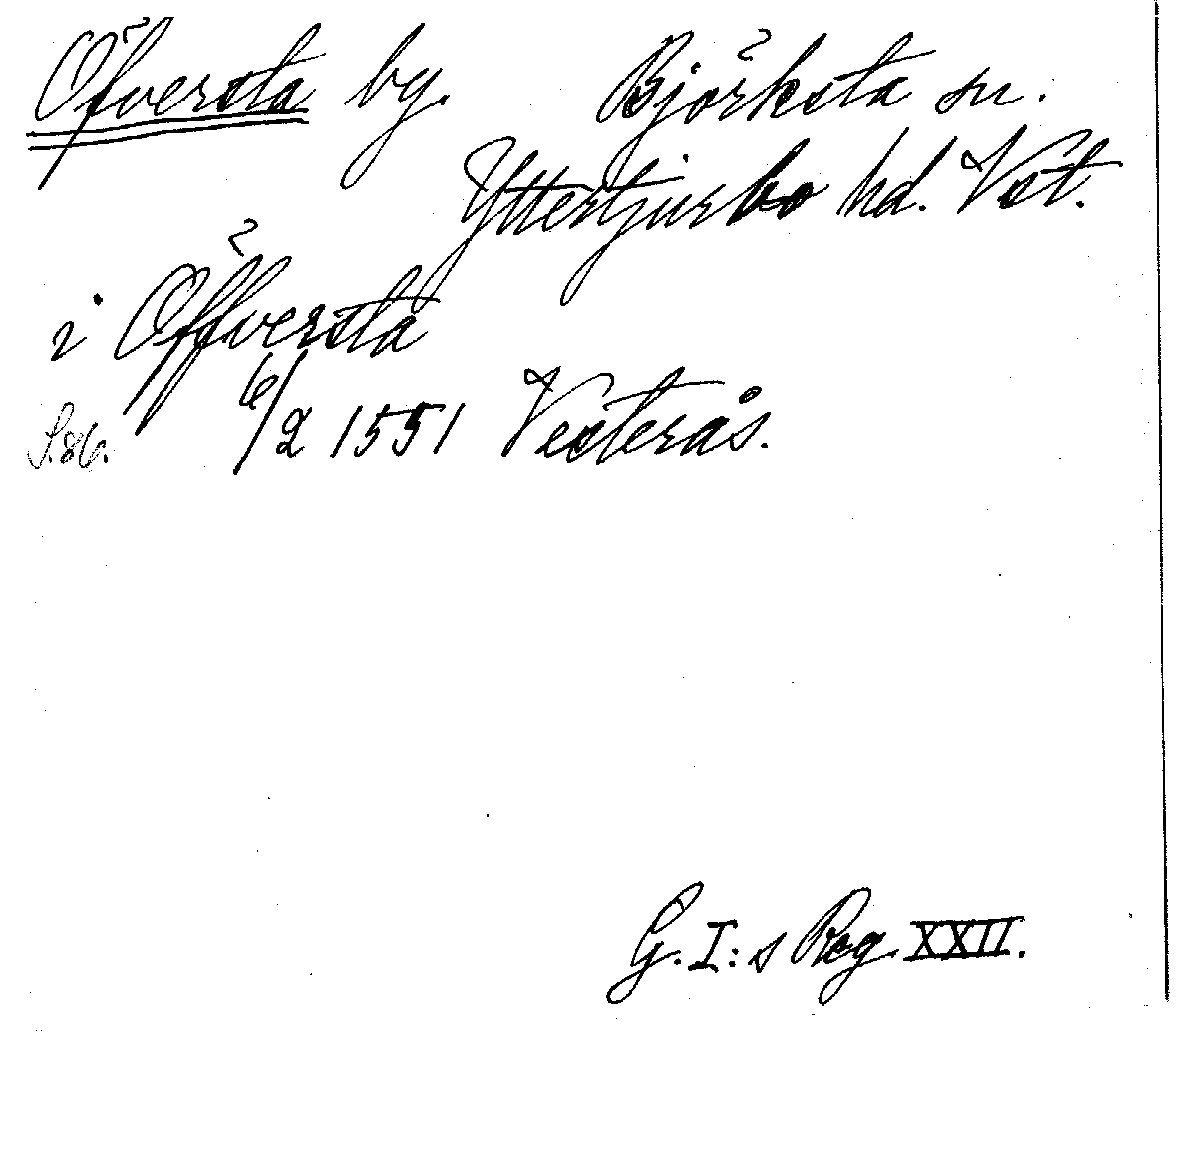 Öfversta by. Björksta sn.
Yttertjurbo hd. Vst.
i Öffversta
S. 86. 6/2 1551 Vesterås.
G. I:s Reg. XXII.